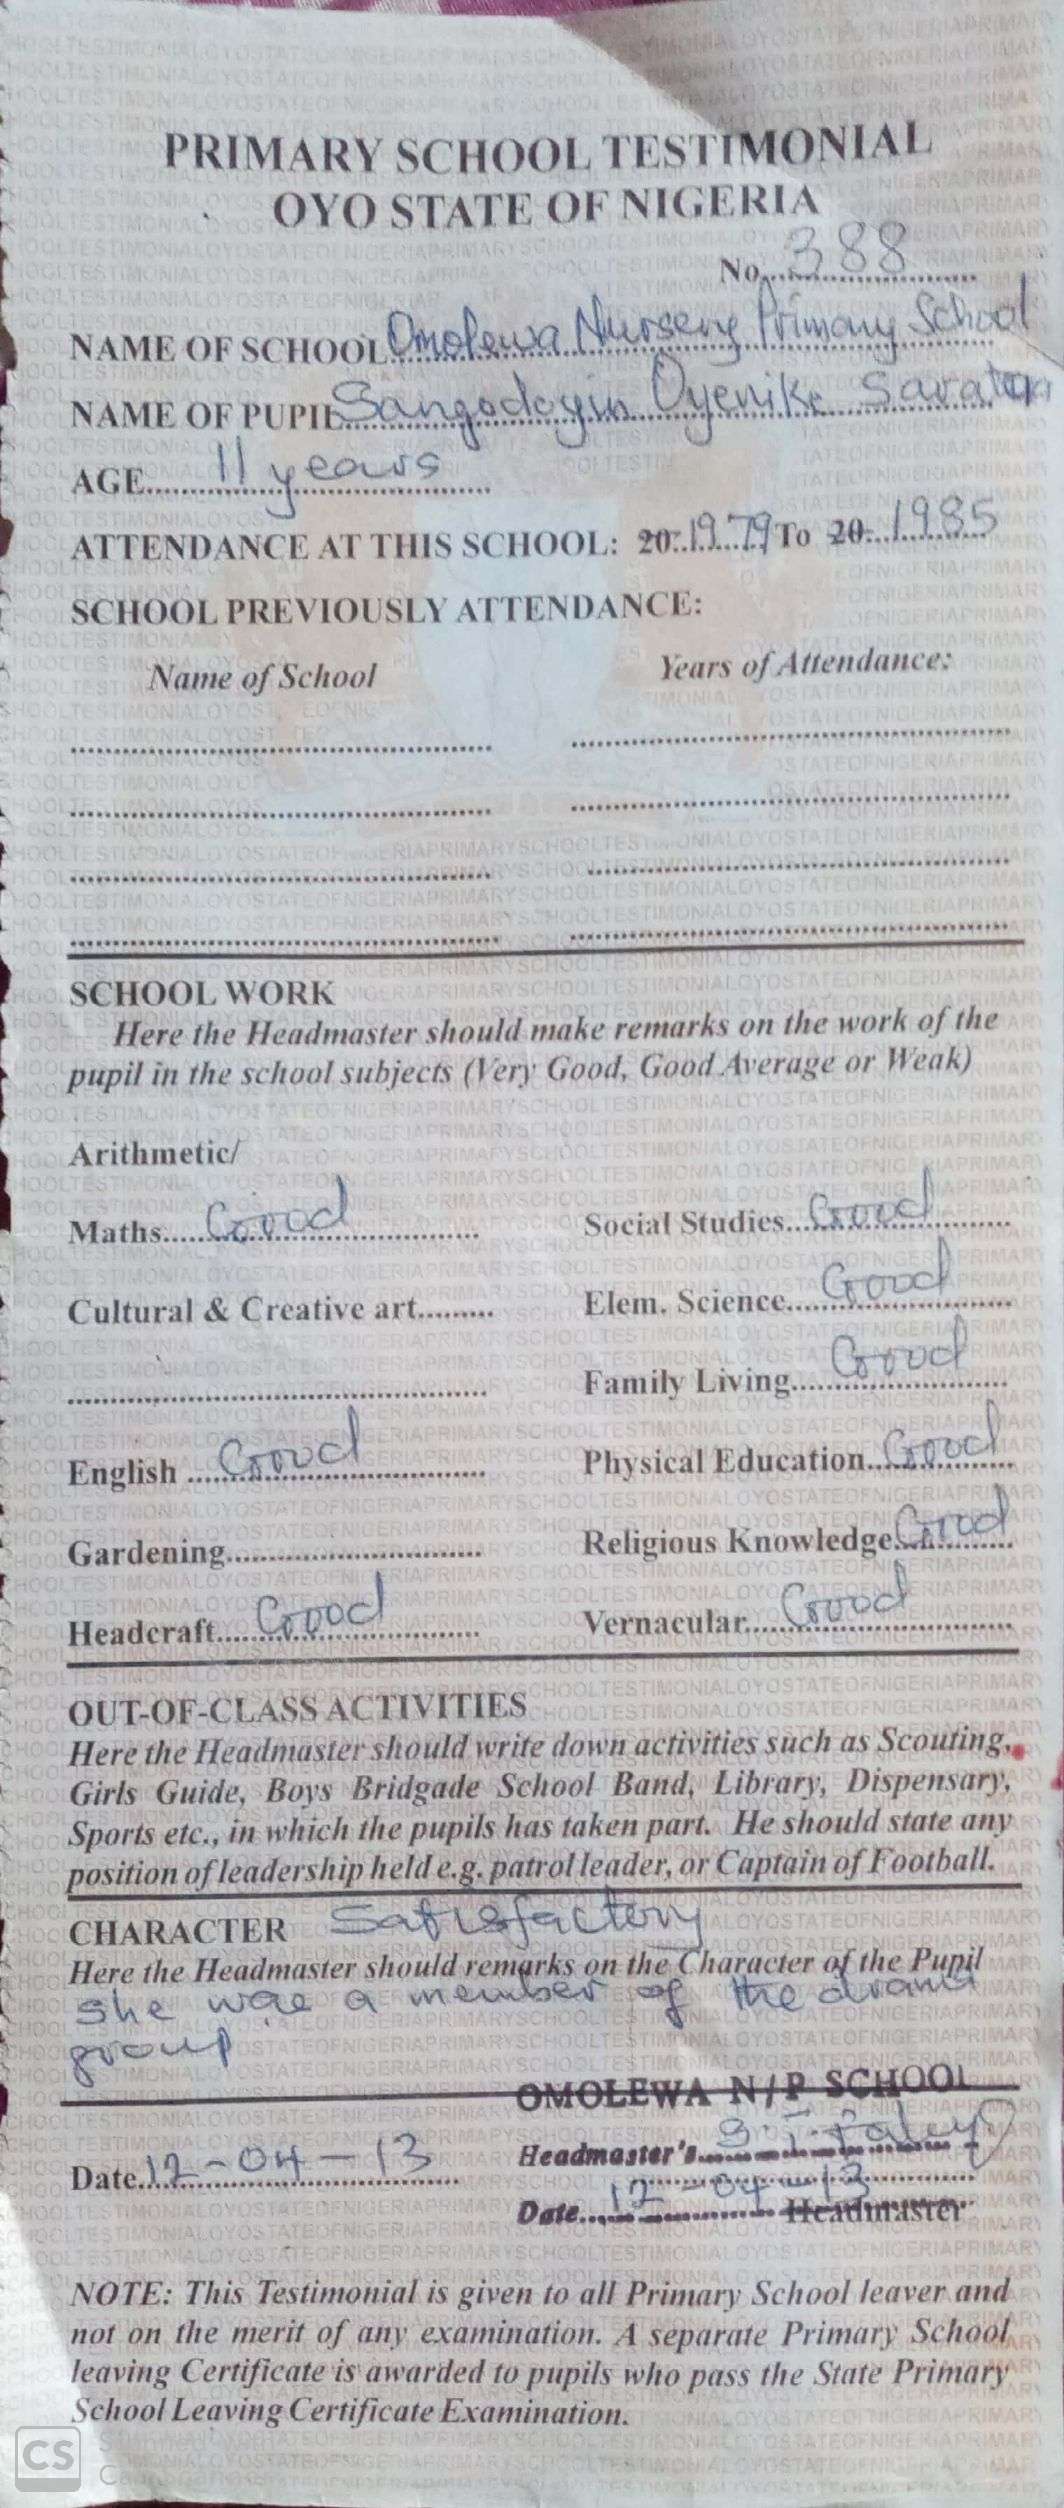 PRIMARY SCHOOL TESTIMONIAL
OYO STATE OF NIGERIA
No. 388
NAME OF SCHOOL Omolewa Nursery Primary School
NAME OF PUPIL Sangodoyin Oyenike
AGE 11 years
ATTENDANCE AT THIS SCHOOL: 20 1979 To 20 1985
SCHOOL PREVIOUSLY ATTENDANCE:
Name of School Years of Attendance:
SCHOOL WORK
Here the Headmaster should make remarks on the work of the
pupil in the school subjects (Very Good, Good Average or Weak)
Arithmetic/
Maths Good Social Studies Good
Cultural & Creative art Elem. Science Good
Family Living Good
English Good Physical Education Good
Gardening Religious Knowledge Good
Headcraft Good Vernacular Good
OUT-OF-CLASS ACTIVITIES
Here the Headmaster should write down activities such as Scouting,
Girls Guide, Boys Bridgade School Band, Library, Dispensary,
Sports etc., in which the pupils has taken part. He should state any
position of leadership held e.g. patrol leader, or Captain of Football.
CHARACTER Satisfactory
Here the Headmaster should remarks on the Character of the Pupil
she was a member of the drama
group
OMOLEWA N/P SCHOOL
Date 12-04-13 Headmaster's
Date 12-04-13 Headmaster
NOTE: This Testimonial is given to all Primary School leaver and
not on the merit of any examination. A separate Primary School
leaving Certificate is awarded to pupils who pass the State Primary
School Leaving Certificate Examination.
CS